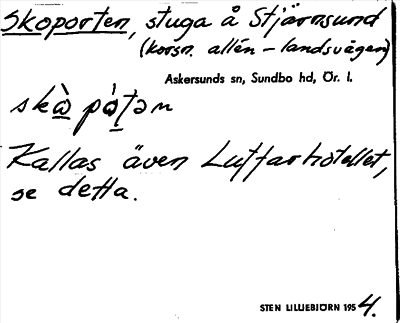 Skoporten, stuga å Stjärnsund
(korsn. allén – landsvägen)
Askersunds sn, Sundbo hd, Ör. l.
skὰ pά̱tən
Kallas även Luffarhotellet,
se detta.
STEN LILLIEBJÖRN 1954.